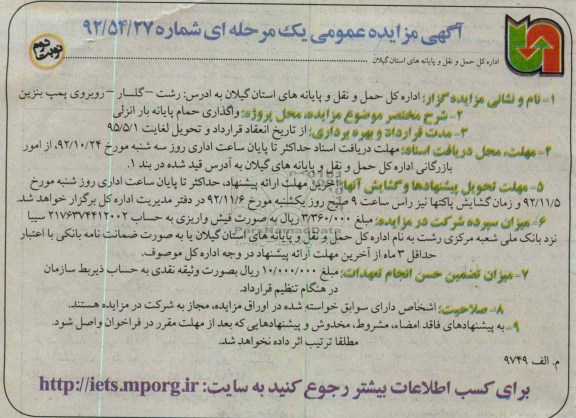 آگهی مزایده عمومی یک مرحله ای شماره ۹۲/۵۴/۲۷
نوبت دوم
اداره کل حمل و نقل و پایانه های استان گیلان
۱- نام و نشانی مزایده گزار: اداره کل حمل و نقل و پایانه های استان گیلان به ادرس: رشت – گلسار – روبروی پمپ بنزین
۲- شرح مختصر موضوع مزایده، محل پروژه: واگذاری حمام پایانه بار انزلی
۳- مدت قرارداد و بهره برداری: از تاریخ انعقاد قرارداد و تحویل لغایت ۹۵/۵/۱
۴- مهلت، محل دریافت اسناد: مهلت دریافت اسناد حداکثر تا پایان ساعت اداری روز سه شنبه مورخ ۹۲/۱۰/۲۴، از امور
بازرگانی اداره کل حمل و نقل و پایانه های گیلان به آدرس قید شده در بند ۱.
۵- مهلت تحویل پیشنهادها و گشایش آنها: آخرین مهلت ارائه پیشنهاد، حداکثر تا پایان ساعت اداری روز شنبه مورخ
۹۲/۱۱/۵ و زمان گشایش پاکتها نیز راس ساعت ۹ صبح روز یکشنبه مورخ ۹۲/۱۱/۶ در دفتر مدیریت اداره کل برگزار خواهد شد.
۶- میزان سپرده شرکت در مزایده: مبلغ ۳/۳۶۰/۰۰۰ ریال به صورت فیش واریزی به حساب ۲۱۷۶۳۷۴۴۱۲۰۰۲ سیبا
نزد بانک ملی شعبه مرکزی رشت به نام اداره کل حمل و نقل و پایانه های استان گیلان یا به صورت ضمانت نامه بانکی با اعتبار
حداقل ۳ ماه از آخرین مهلت ارائه پیشنهاد در وجه اداره کل موصوف.
۷- میزان تضمین حسن انجام تعهدات: مبلغ ۱۰/۰۰۰/۰۰۰ ریال بصورت وثیقه نقدی به حساب ذیربط سازمان
در هنگام تنظیم قرارداد.
۸- صلاحیت: اشخاص دارای سوابق خواسته شده در اوراق مزایده، مجاز به شرکت در مزایده هستند.
۹- به پیشنهادهای فاقد امضاء، مشروط، مخدوش و پیشنهادهایی که بعد از مهلت مقرر در فراخوان واصل شود.
مطلقا ترتیب اثر داده نخواهد شد.
م. الف ۹۷۴۹
برای کسب اطلاعات بیشتر رجوع کنید به سایت: http://iets.mporg.ir